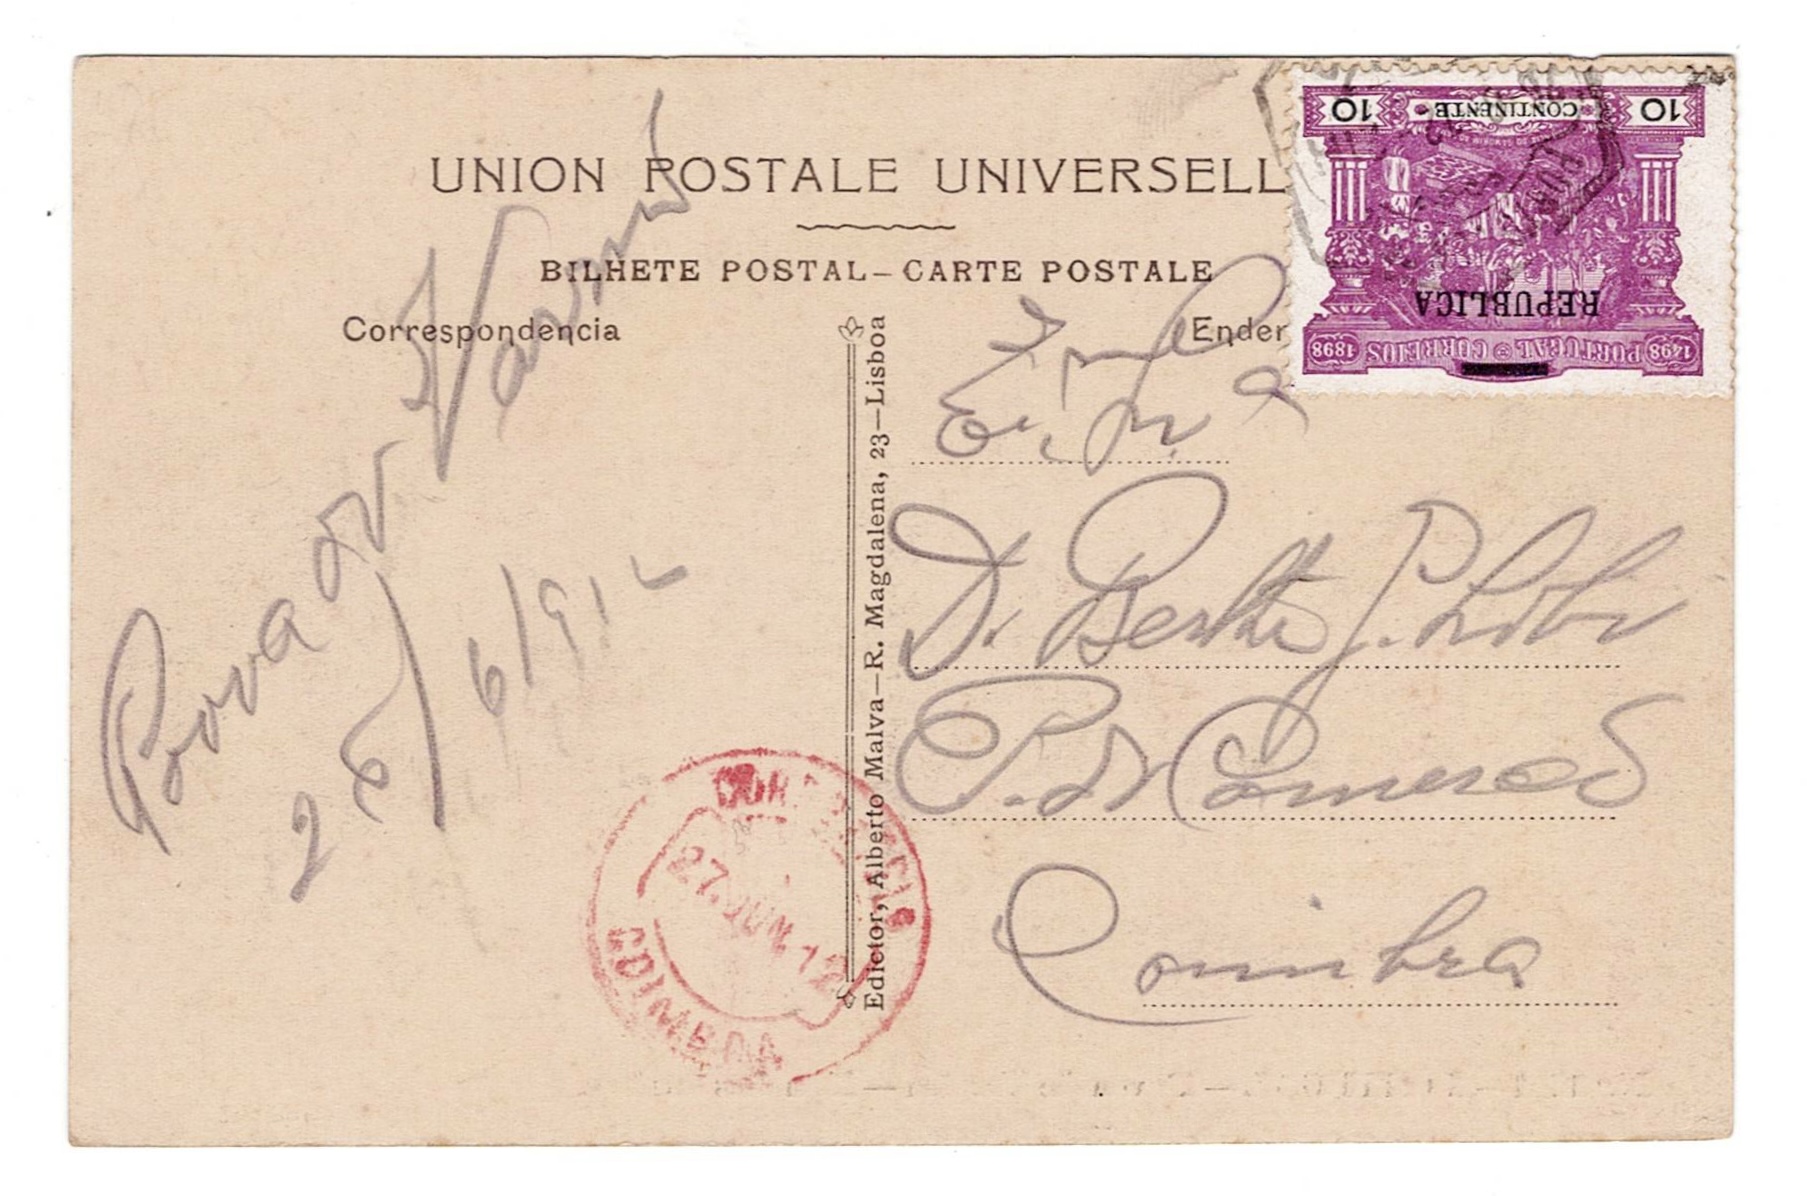 UNION POSTALE UNIVERSELL
BILHETE POSTAL–CARTE POSTALE
Correspondencia
Ender
Edictor, Alberto Malva—R. Magdalena, 23—Lisboa
10 CONTINENTE 10
REPUBLICA
1498 PORTUGAL CORREIOS 1898
Povoa Varzim
26/6/912
D. Bertha
P. do Comercio
Coimbra
27.JUN.12
COIMBRA